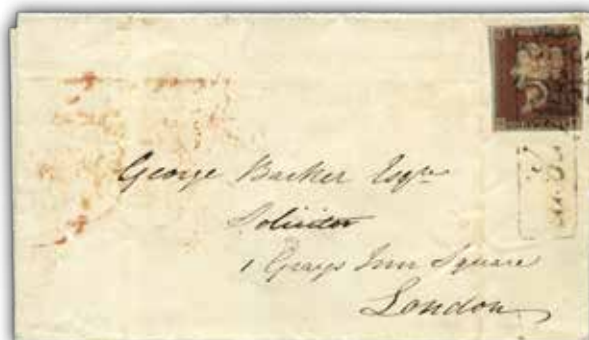 George Barker Esqre
Solicitor
1 Grays Inn Square
London